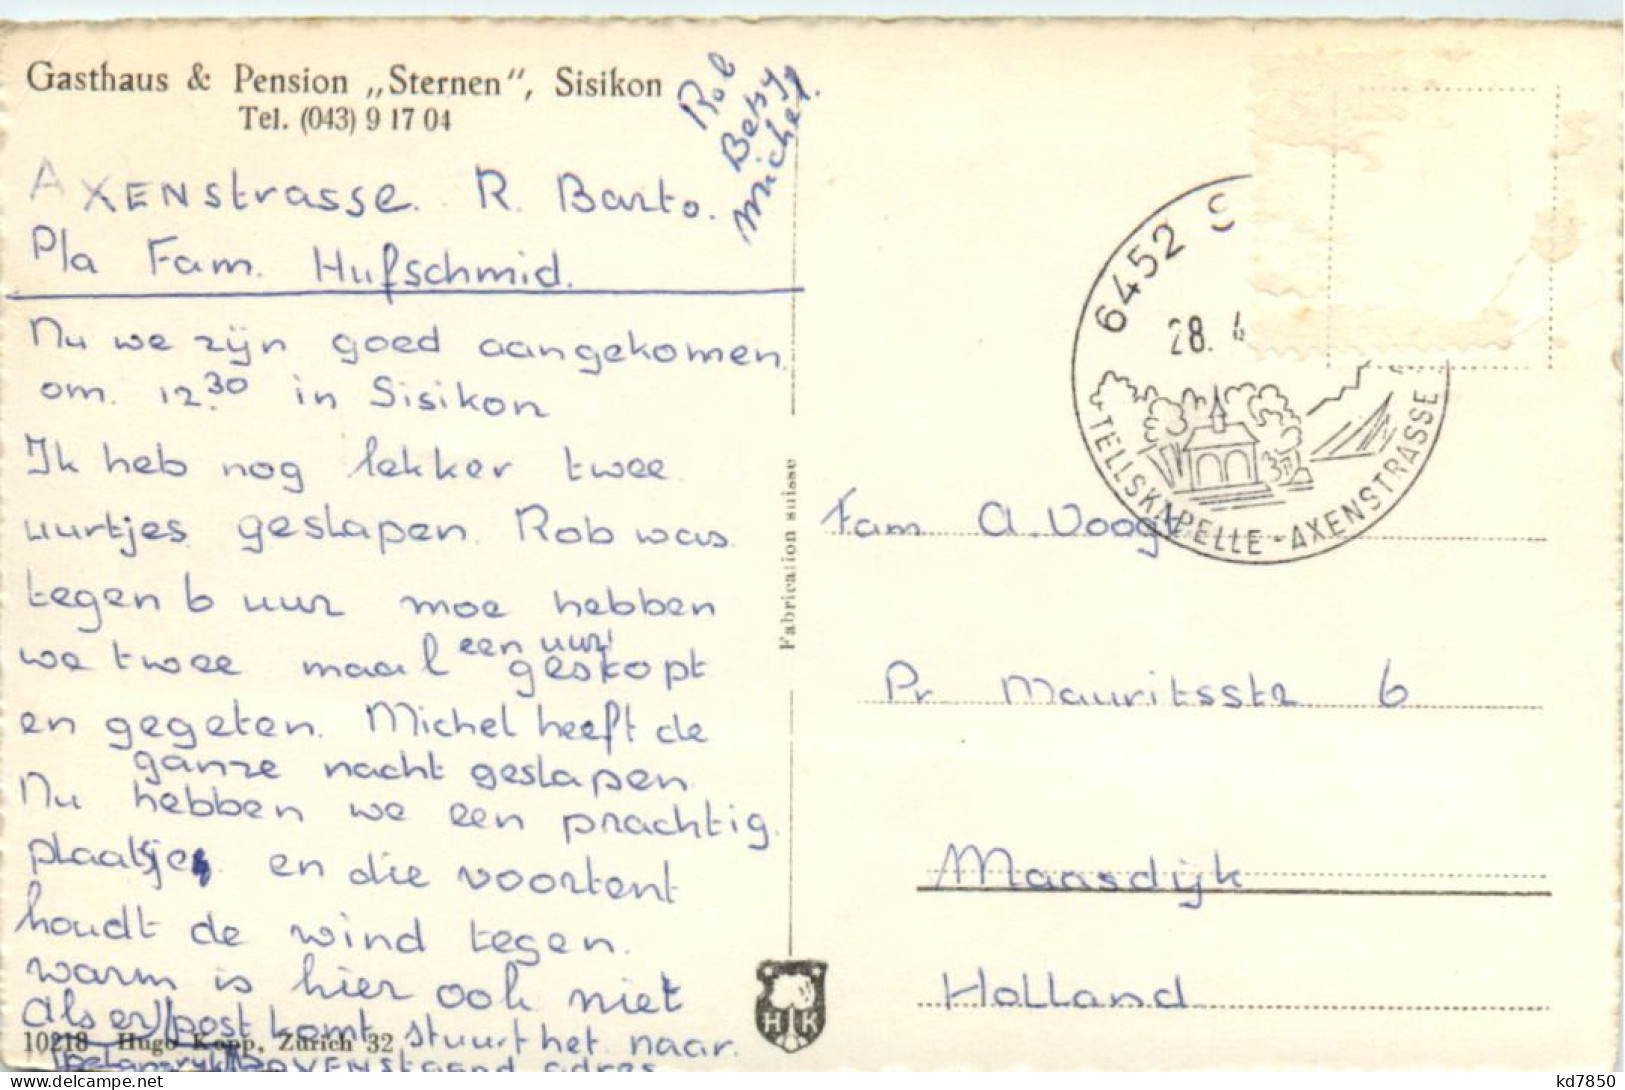 Gasthaus & Pension „Sternen“, Sisikon
Tel. (043) 9 17 04
Rob
Betsy
Michel.
AXENstrasse. R. Barto.
P/a Fam. Hufschmid.
Nu we zijn goed aangekomen
om. 12.30 in Sisikon
Ik heb nog lekker twee
uurtjes geslapen. Rob was
tegen 6 uur moe hebben
we twee maal een uur gestopt
en gegeten. Michel heeft de
ganze nacht geslapen.
Nu hebben we een prachtig.
plaatsje en die voortent
houdt de wind tegen.
warm is hier ook niet
Als er post komt stuurt het naar.
bovenstaand adres
10218 Hugo Kopp, Zürich 32
Fabrication suisse
HK
6452 S
28. 4
TELLSKAPELLE - AXENSTRASSE
Fam A. Voogt
Pr Mauritsstr 6
Maasdijk
Holland
kd7850
© www.delcampe.net